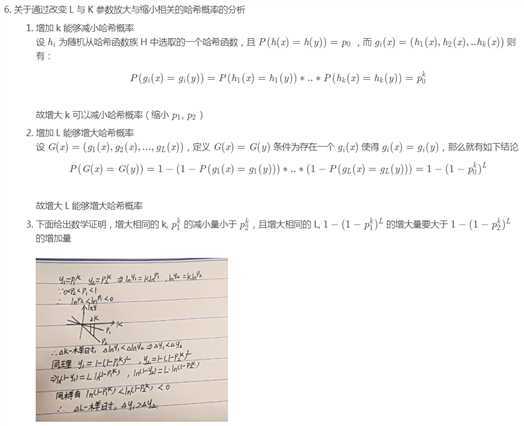 6. 关于通过改变 L 与 K 参数放大与缩小相关的哈希概率的分析
1. 增加 k 能够减小哈希概率
设 hᵢ 为随机从哈希函数族 H 中选取的一个哈希函数，且 P(h(x) = h(y)) = p₀ ，而 gᵢ(x) = (h₁(x), h₂(x), ..hₖ(x)) 则
有：
P(gᵢ(x) = gᵢ(y)) = P(h₁(x) = h₁(y)) * .. * P(hₖ(x) = hₖ(y)) = p₀ᵏ
故增大 k 可以减小哈希概率（缩小 p₁, p₂ ）
2. 增加 L 能够增大哈希概率
设 G(x) = (g₁(x), g₂(x), ..., g_L(x))，定义 G(x) = G(y) 条件为存在一个 gᵢ(x) 使得 gᵢ(x) = gᵢ(y)，那么就有如下结论
P(G(x) = G(y)) = 1 − (1 − P(g₁(x) = g₁(y))) * .. * (1 − P(g_L(x) = g_L(y))) = 1 − (1 − p₀ᵏ)ᴸ
故增大 L 能够增大哈希概率
3. 下面给出数学证明，增大相同的 k, p₁ᵏ 的减小量小于 p₂ᵏ，且增大相同的 L, 1 − (1 − p₁ᵏ)ᴸ 的增大量要大于 1 − (1 − p₂ᵏ)ᴸ
的增加量
y₁=p₁ᵏ y₂=p₂ᵏ ⇒ lny₁=klnp₁ , lny₂=klnp₂
∵ 0<p₂<p₁<1
∴ lnp₂<lnp₁<0
lny
k
P₁
P₂
∴ Δk一样时, Δlny₁<Δlny₂ ⇒ Δy₁<Δy₂
同理 y₁=1-(1-p₁ᵏ)ᴸ , y₂=1-(1-p₂ᵏ)ᴸ
⇒ ln(1-y₁)=L·ln(1-p₁ᵏ) , ln(1-y₂)=L·ln(1-p₂ᵏ)
同样有 ln(1-p₁ᵏ)<ln(1-p₂ᵏ)<0
∴ ΔL一样时, Δy₁>Δy₂